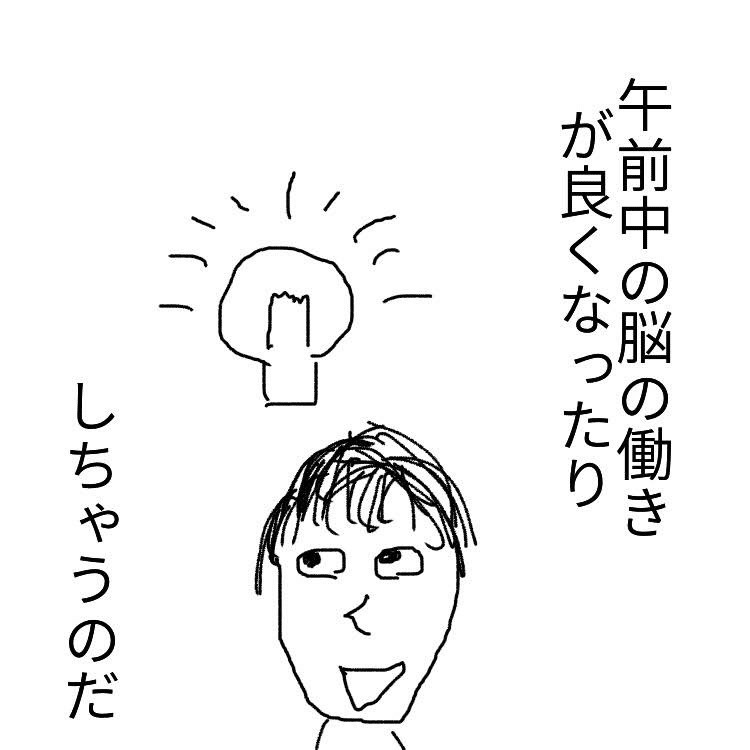 午前中の脳の働き
が良くなったり
しちゃうのだ